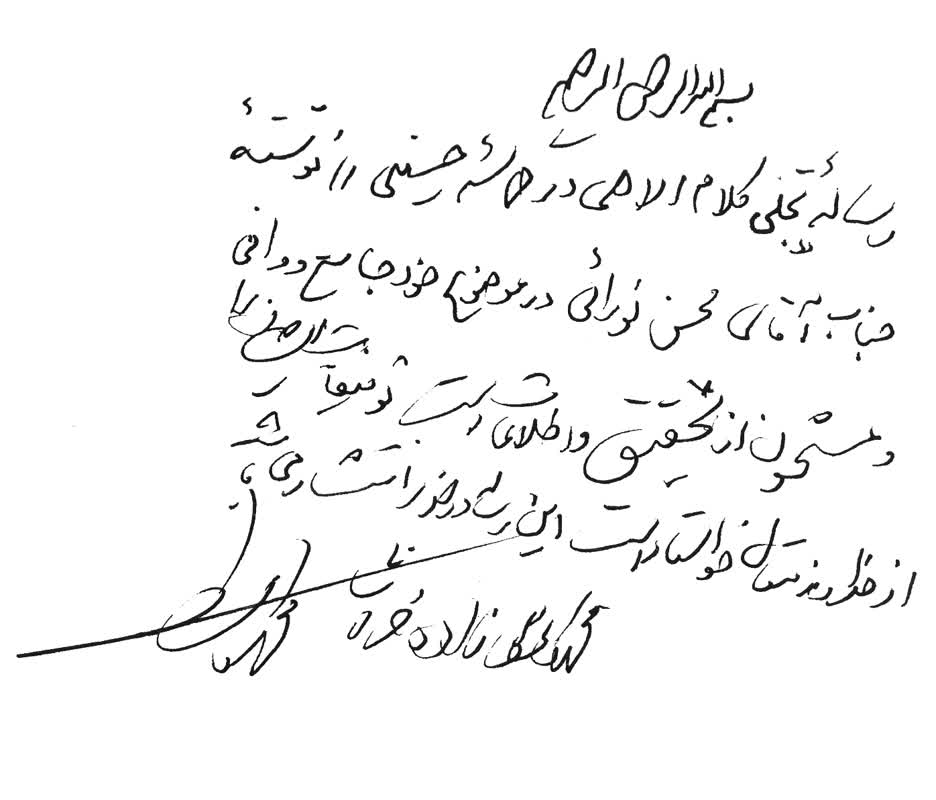 بسم الله الرحمن الرحیم
رسالهٔ تجلی کلام الاهی در حماسهٔ حسینی را نوشتهٔ
جناب آقای محسن نورائی در موضوع خود جامع و وافی
و مشحون از تحقیق و اطلاع است توفیقات ایشان را
از خداوند متعال خواستار است این رساله در خور انتشار می‌باشد
محمد